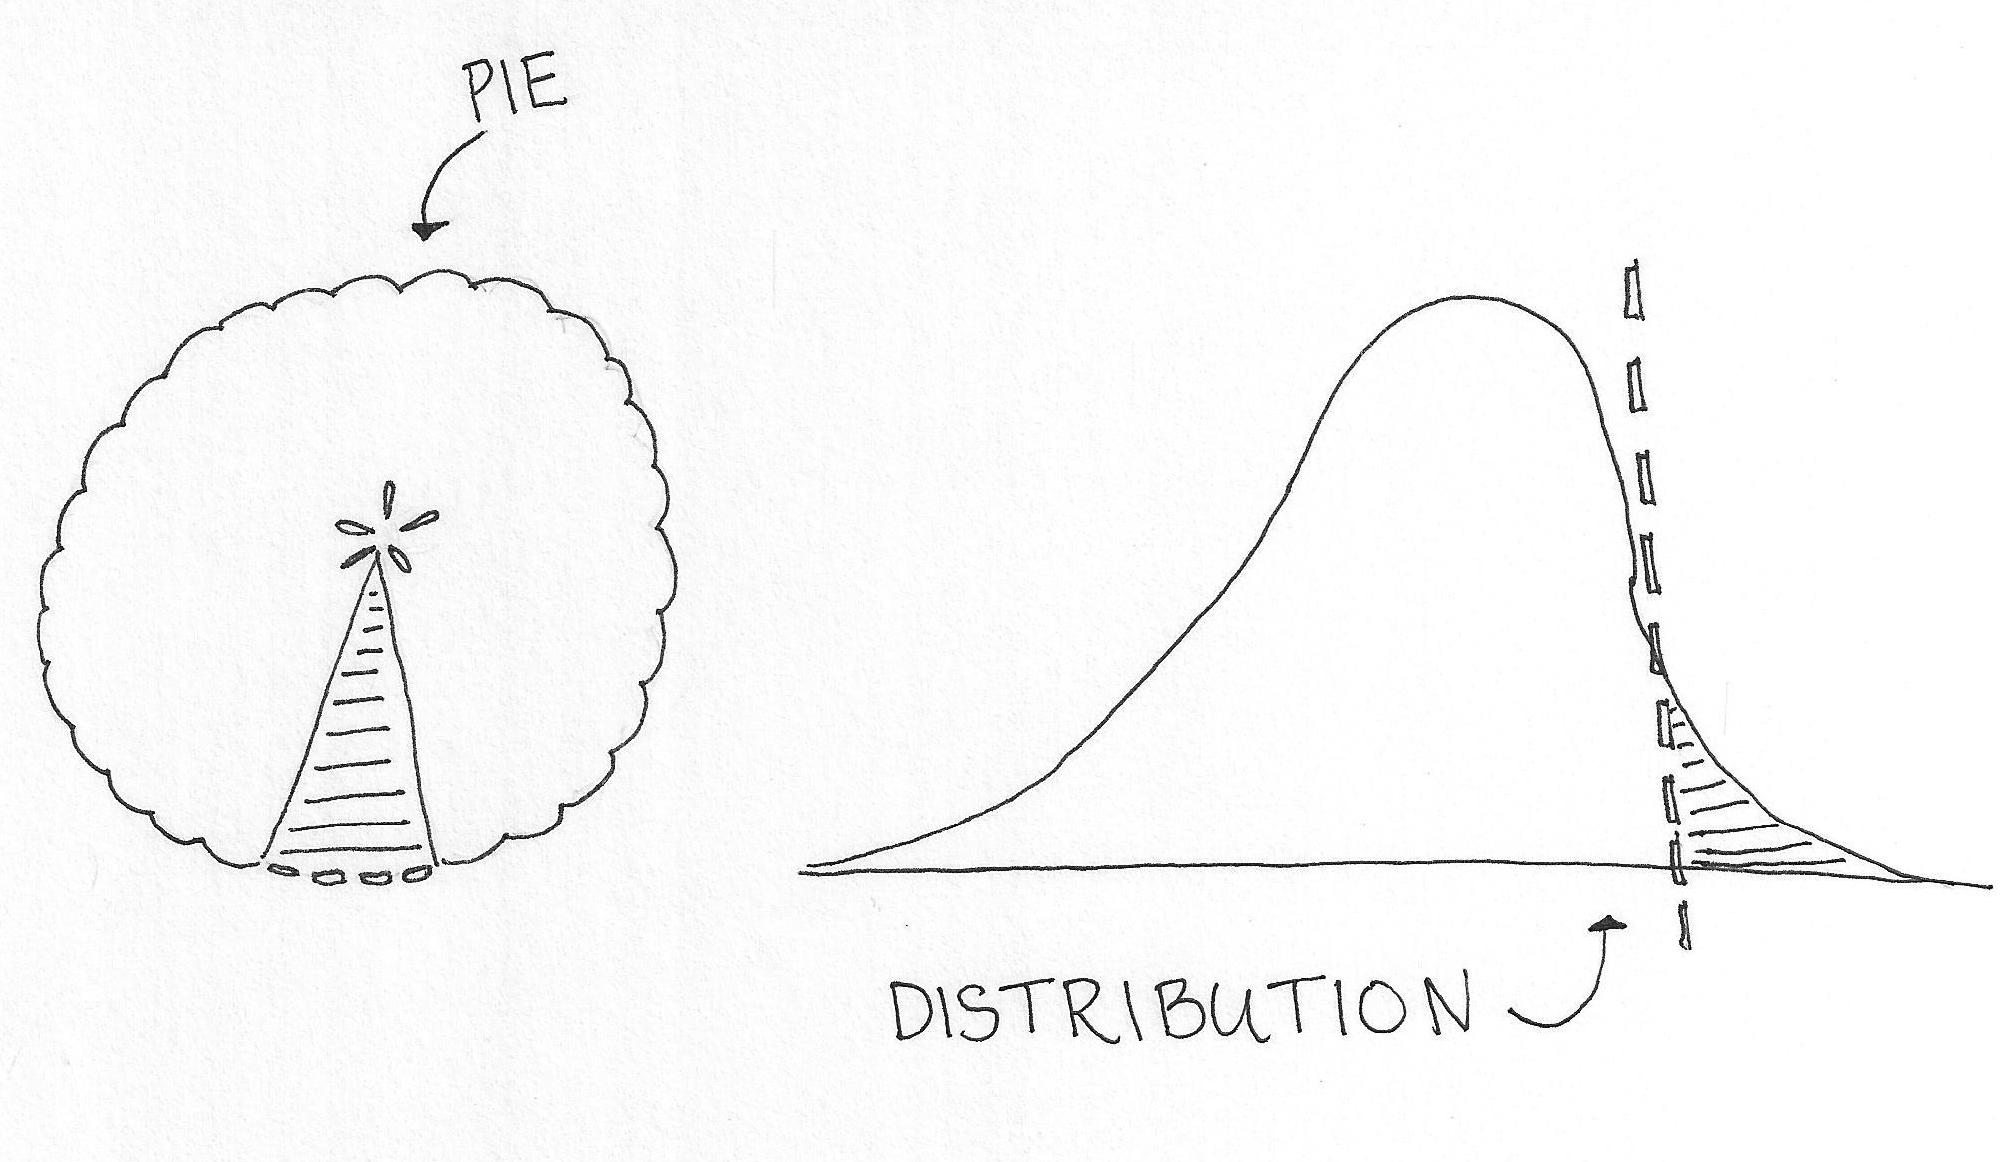 PIE
DISTRIBUTION